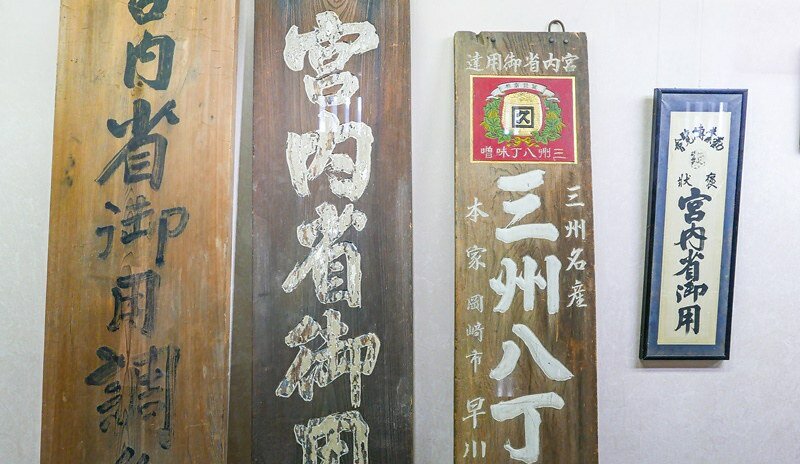 宮内省御用調
宮内省御用
達用御省内宮
久
噌味丁八州三
三州名産
三州八丁
本家 岡崎市 早川
褒状
宮内省御用